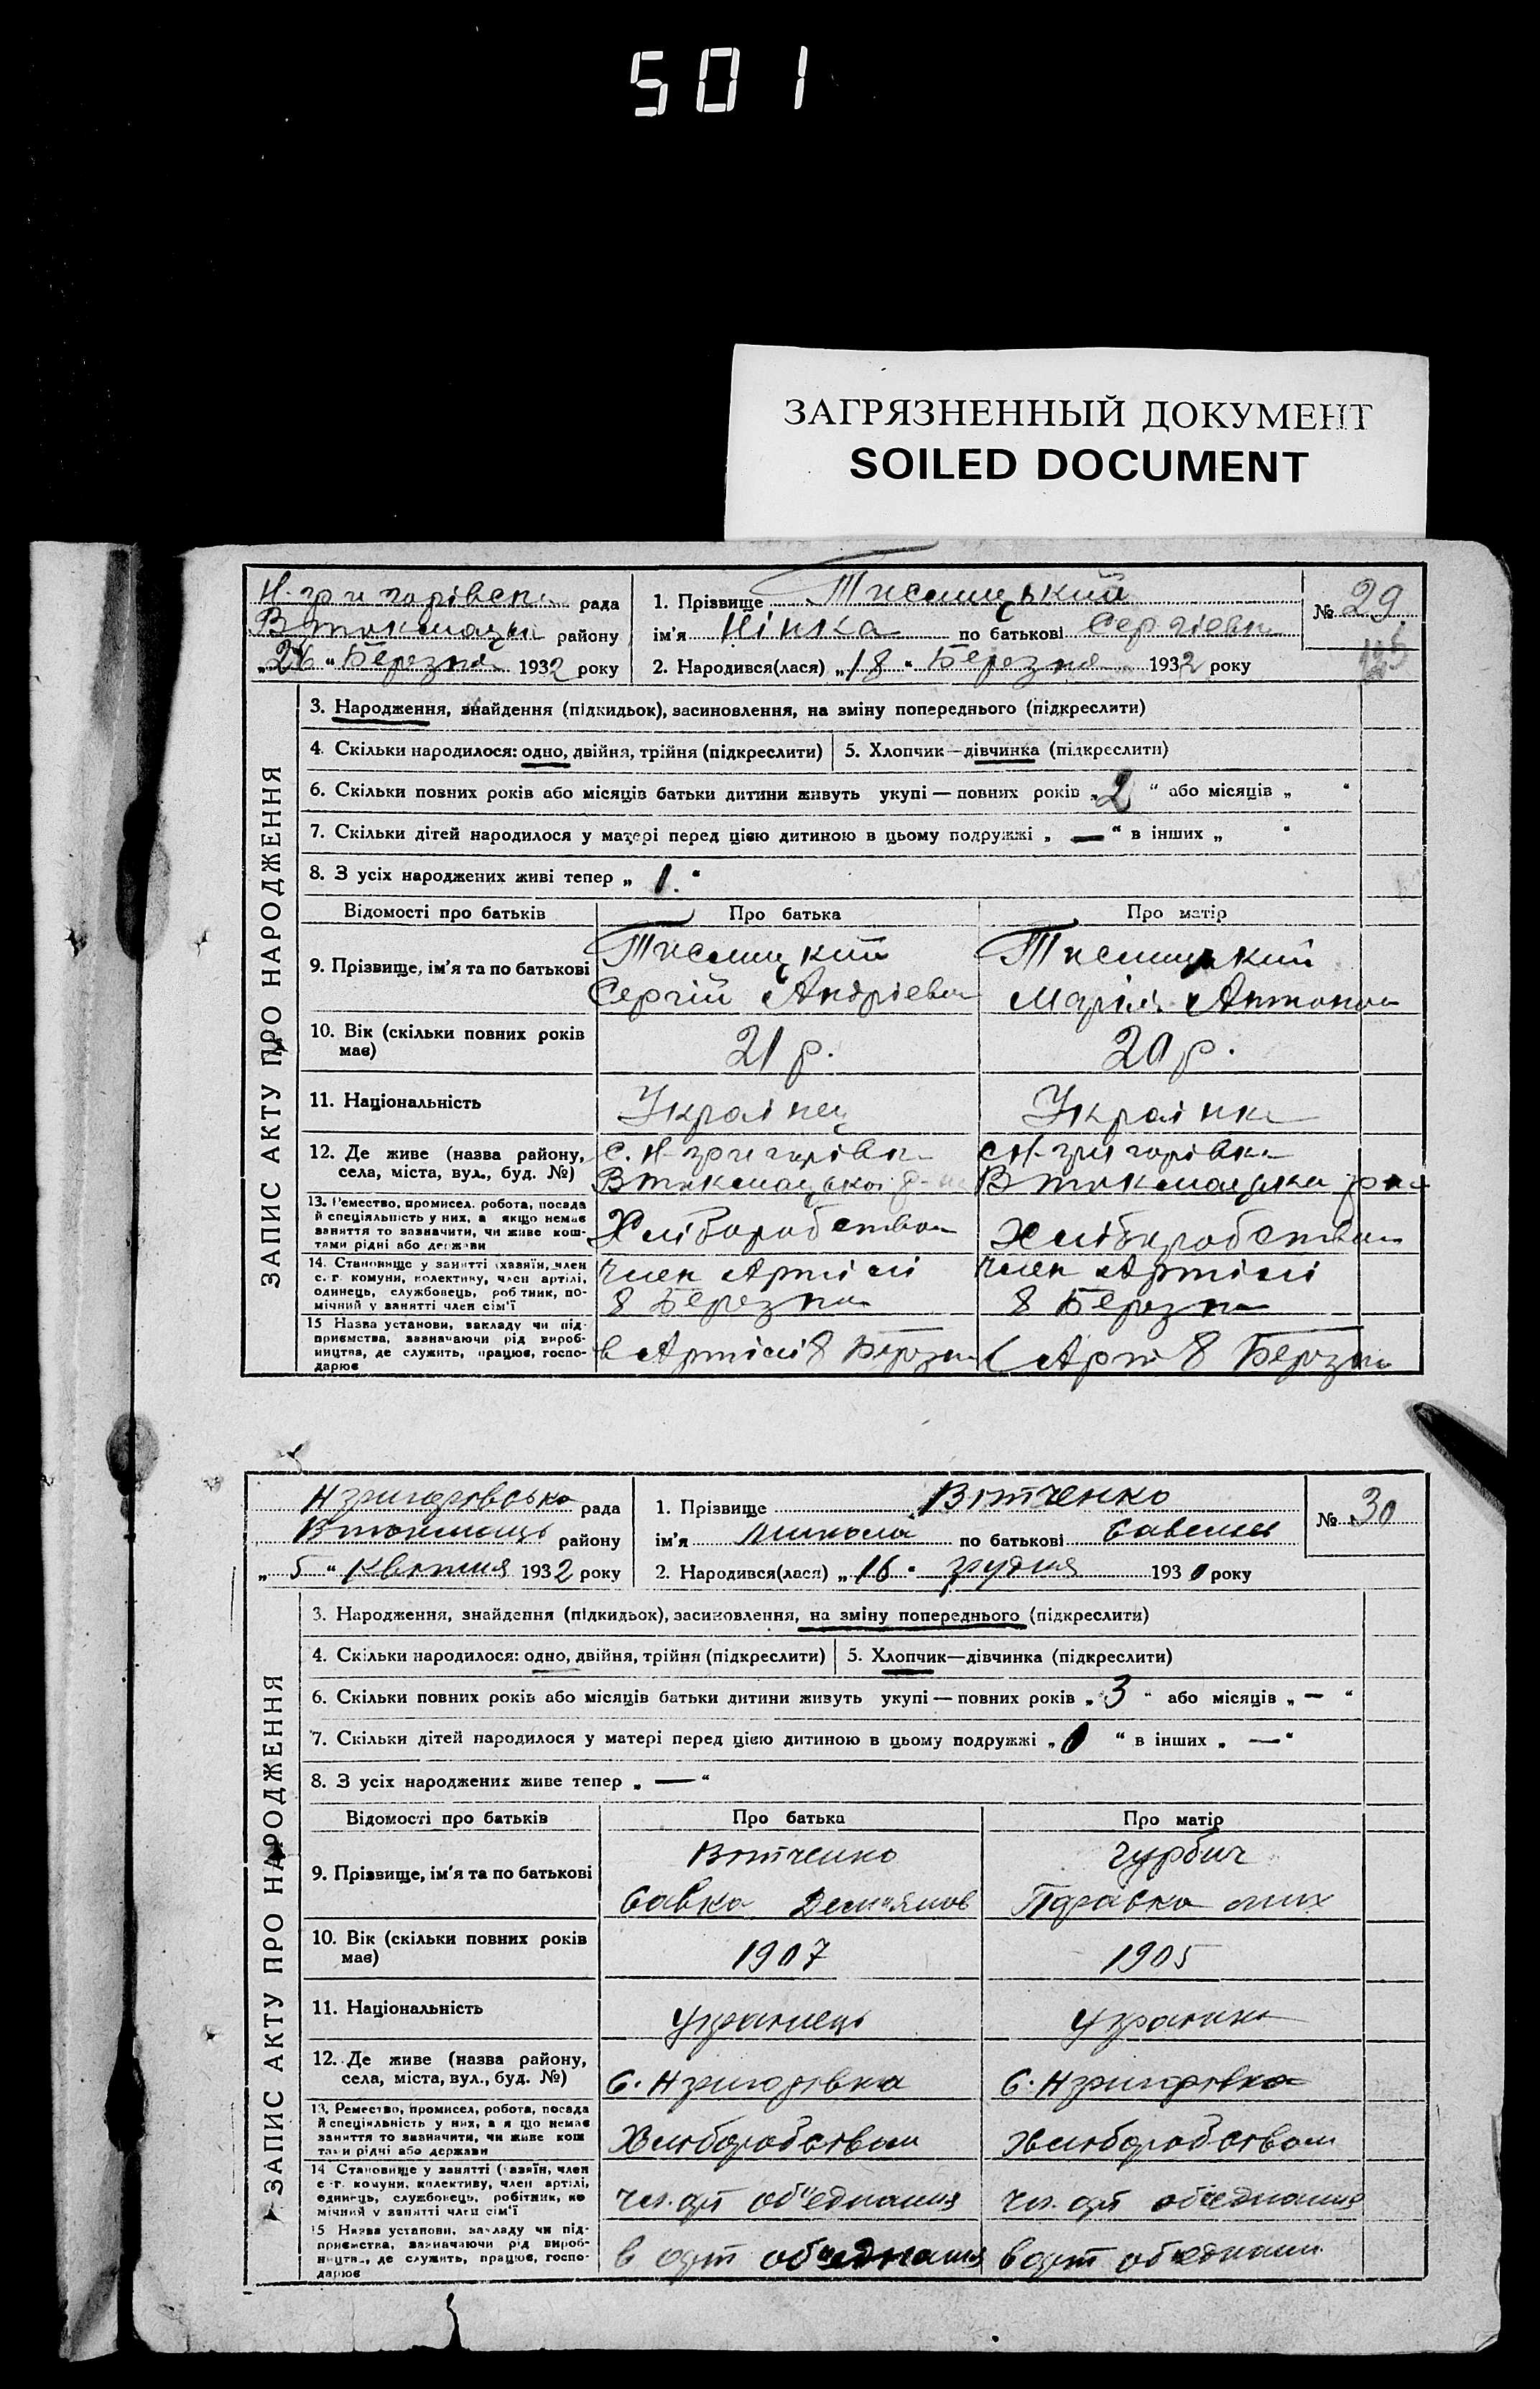 501
ЗАГРЯЗНЕННЫЙ ДОКУМЕНТ
SOILED DOCUMENT
Н-григорівськ рада
В токмацьк району
„26“ Березня 1932 року
1. Прізвище
ім'я Нінка по батькові Сергіевн
2. Народився(лася) „18“ Березня 1932 року
№ 29
ЗАПИС АКТУ ПРО НАРОДЖЕННЯ
3. Народження, знайдення (підкидьок), засиновлення, на зміну попереднього (підкреслити)
4. Скільки народилося: одно, двійня, трійня (підкреслити) 5. Хлопчик—дівчинка (підкреслити)
6. Скільки повних років або місяців батьки дитини живуть укупі — повних років „2“ або місяців „ “
7. Скільки дітей народилося у матері перед цією дитиною в цьому подружжі „—“ в інших „ “
8. З усіх народжених живі тепер „1.“
Відомості про батьків Про батька Про матір
9. Прізвище, ім'я та по батькові
Сергій Андріевич
Марія Антонов
10. Вік (скільки повних років має) 21 р. 20 р.
11. Національність Украінец Украінка
12. Де живе (назва району, села, міста, вул., буд. №)
с. Н-григорівка с Н-григорівка
В токмацького р-на В токмацька р-на
13. Ремество, промисел, робота, посада
й спеціяльність у них, а якщо немає
заняття то зазначити, чи живе кош-
тами рідні або держави
Хліборобством Хліборобством
14. Становище у занятті (хазяїн, член
с. г. комуни, колективу, член артілі,
одинець, службовець, робітник, по-
мічний у занятті член сім'ї
Член Артілі Член Артілі
8 Березня 8 Березня
15 Назва установи, закладу чи під-
приємства, зазначаючи рід вироб-
ництва, де служить, працює, госпо-
дарює
в Артілі 8 Березня Арт 8 Березня
Н григоровсько рада
В токмаць району
„5“ Квітня 1932 року
1. Прізвище Вотченко
ім'я Микола по батькові Савелев
2. Народився(лася) „16“ грудня 1930 року
№ 30
ЗАПИС АКТУ ПРО НАРОДЖЕННЯ
3. Народження, знайдення (підкидьок), засиновлення, на зміну попереднього (підкреслити)
4. Скільки народилося: одно, двійня, трійня (підкреслити) 5. Хлопчик—дівчинка (підкреслити)
6. Скільки повних років або місяців батьки дитини живуть укупі — повних років „3“ або місяців „—“
7. Скільки дітей народилося у матері перед цією дитиною в цьому подружжі „0“ в інших „—“
8. З усіх народжених живе тепер „—“
Відомості про батьків Про батька Про матір
9. Прізвище, ім'я та по батькові
Вотченко Гурбич
Савка Демьянов
10. Вік (скільки повних років має) 1907 1905
11. Національність Українець Українка
12. Де живе (назва району, села, міста, вул., буд. №)
С. Н григоровка С. Н григоровка
13. Ремество, промисел, робота, посада
й спеціяльність у них, а якщо немає
заняття то зазначити, чи живе кош
тами рідні або держави
Хлиборобством хлиборобством
14 Становище у занятті (хазяїн, член
с г. комуни, колективу, член артілі,
одинець, службовець, робітник, по
мічний у занятті член сім'ї
чл. арт об'еднання чл. арт об'еднання
15 Назва установи, закладу чи під-
приємства, зазначаючи рід вироб-
ництва, де служить, працює, госпо-
дарює
в арт об'еднання в арт об'еднани